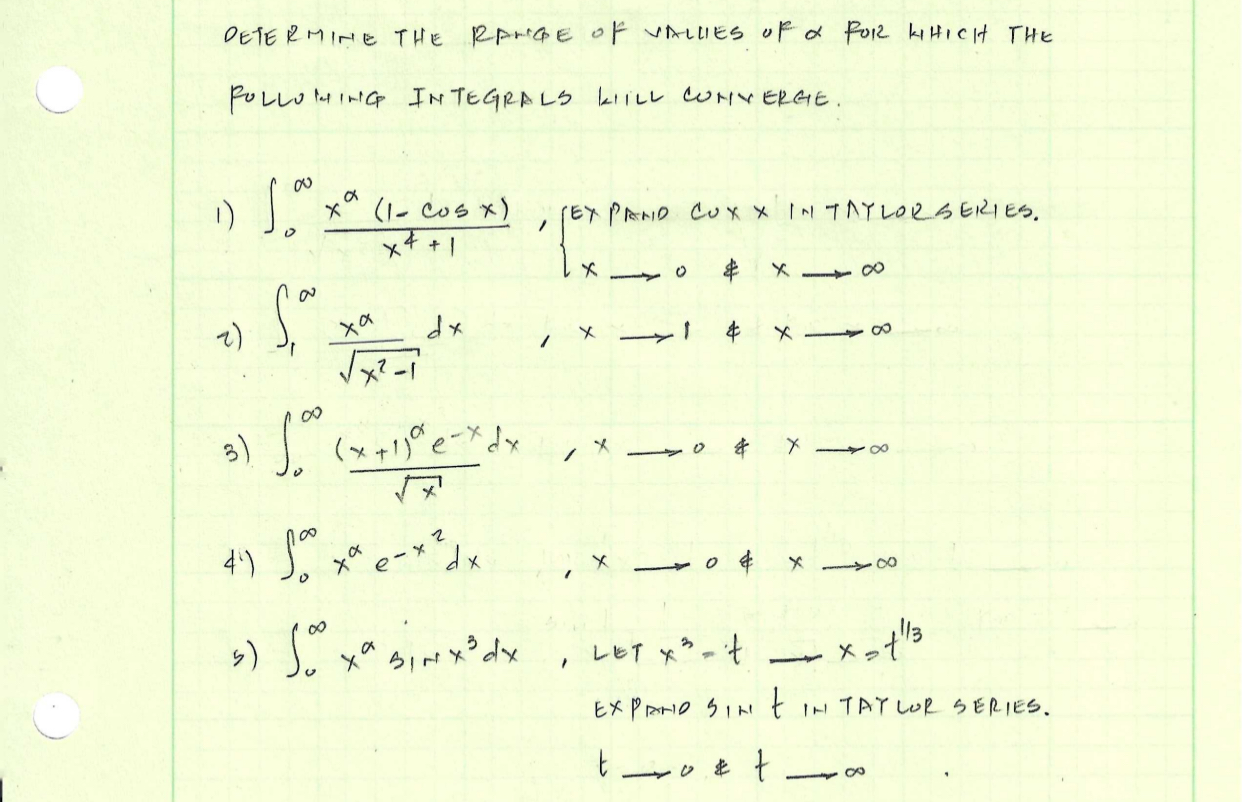 DETERMINE THE RANGE OF VALUES OF α FOR WHICH THE
FOLLOWING INTEGRALS WILL CONVERGE.
1) ∫₀^∞ x^α (1 - cos x) / (x⁴ + 1) , { EXPAND COX X IN TAYLOR SERIES.
x → 0 & x → ∞
2) ∫₁^∞ x^α / √(x² - 1) dx , x → 1 & x → ∞
3) ∫₀^∞ (x + 1)^α e^(-x) dx / √x , x → 0 & x → ∞
4) ∫₀^∞ x^α e^(-x²) dx , x → 0 & x → ∞
5) ∫₀^∞ x^α SIN x³ dx , LET x³ = t → x = t^(1/3)
EXPAND SIN t IN TAYLOR SERIES.
t → 0 & t → ∞ .